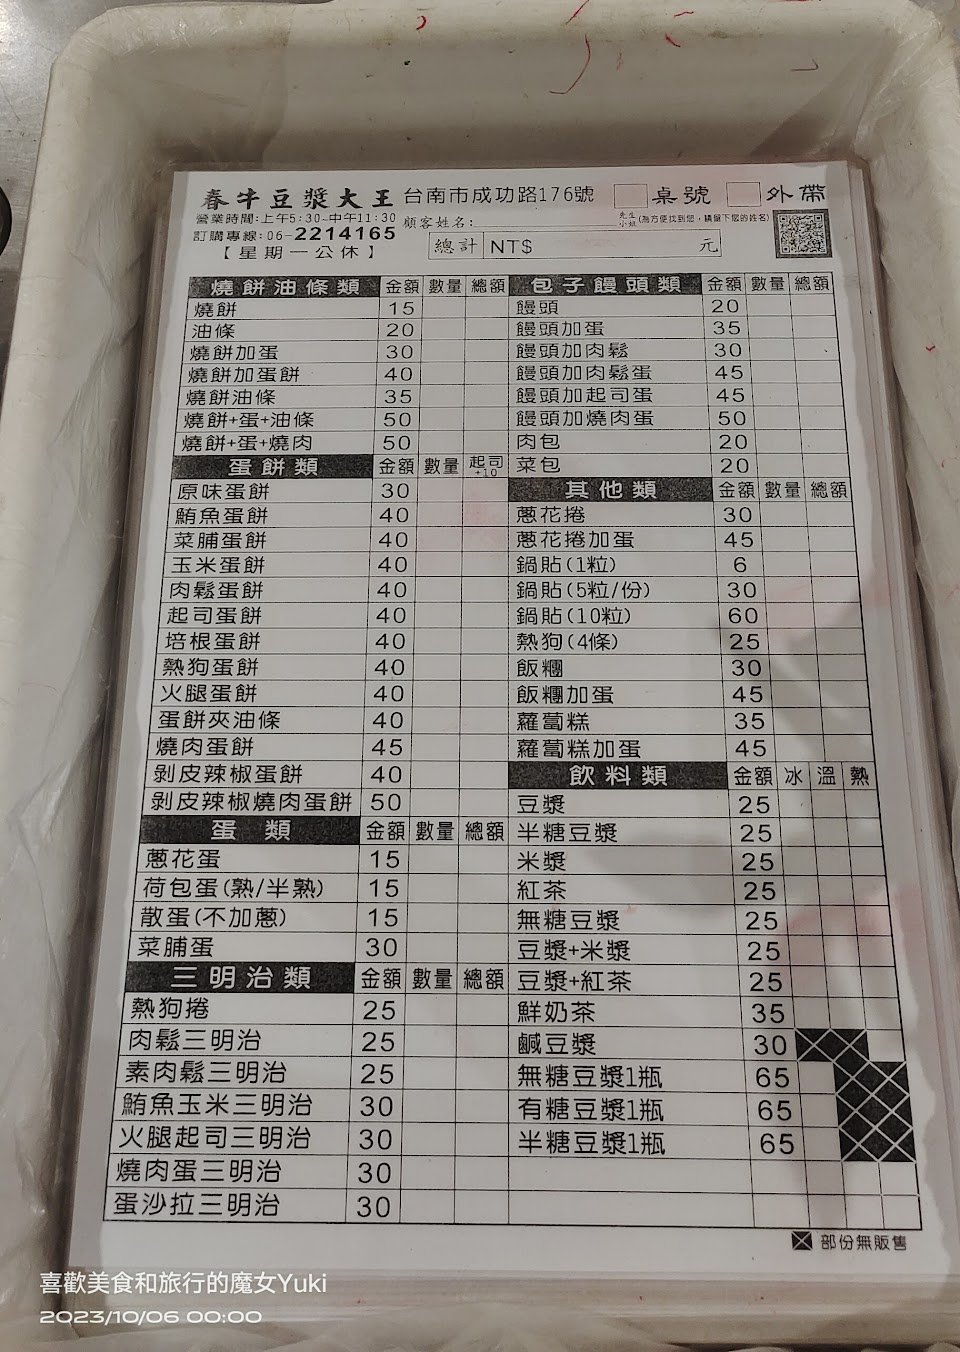 春牛豆漿大王 台南市成功路176號 桌號 外帶
營業時間:上午5:30~中午11:30 顧客姓名: 先生 小姐 (為方便找到您，請留下您的姓名)
訂購專線:06-2214165
【星期一公休】
總計 NT$ 元
燒餅油條類 金額 數量 總額
燒餅 15
油條 20
燒餅加蛋 30
燒餅加蛋餅 40
燒餅油條 35
燒餅+蛋+油條 50
燒餅+蛋+燒肉 50
蛋餅類 金額 數量 起司+10
原味蛋餅 30
鮪魚蛋餅 40
菜脯蛋餅 40
玉米蛋餅 40
肉鬆蛋餅 40
起司蛋餅 40
培根蛋餅 40
熱狗蛋餅 40
火腿蛋餅 40
蛋餅夾油條 40
燒肉蛋餅 45
剝皮辣椒蛋餅 40
剝皮辣椒燒肉蛋餅 50
蛋類 金額 數量 總額
蔥花蛋 15
荷包蛋(熟/半熟) 15
散蛋(不加蔥) 15
菜脯蛋 30
三明治類 金額 數量 總額
熱狗捲 25
肉鬆三明治 25
素肉鬆三明治 25
鮪魚玉米三明治 30
火腿起司三明治 30
燒肉蛋三明治 30
蛋沙拉三明治 30
包子饅頭類 金額 數量 總額
饅頭 20
饅頭加蛋 35
饅頭加肉鬆 30
饅頭加肉鬆蛋 45
饅頭加起司蛋 45
饅頭加燒肉蛋 50
肉包 20
菜包 20
其他類 金額 數量 總額
蔥花捲 30
蔥花捲加蛋 45
鍋貼(1粒) 6
鍋貼(5粒/份) 30
鍋貼(10粒) 60
熱狗(4條) 25
飯糰 30
飯糰加蛋 45
蘿蔔糕 35
蘿蔔糕加蛋 45
飲料類 金額 冰 溫 熱
豆漿 25
半糖豆漿 25
米漿 25
紅茶 25
無糖豆漿 25
豆漿+米漿 25
豆漿+紅茶 25
鮮奶茶 35
鹹豆漿 30
無糖豆漿1瓶 65
有糖豆漿1瓶 65
半糖豆漿1瓶 65
部份無販售
喜歡美食和旅行的魔女Yuki
2023/10/06 00:00